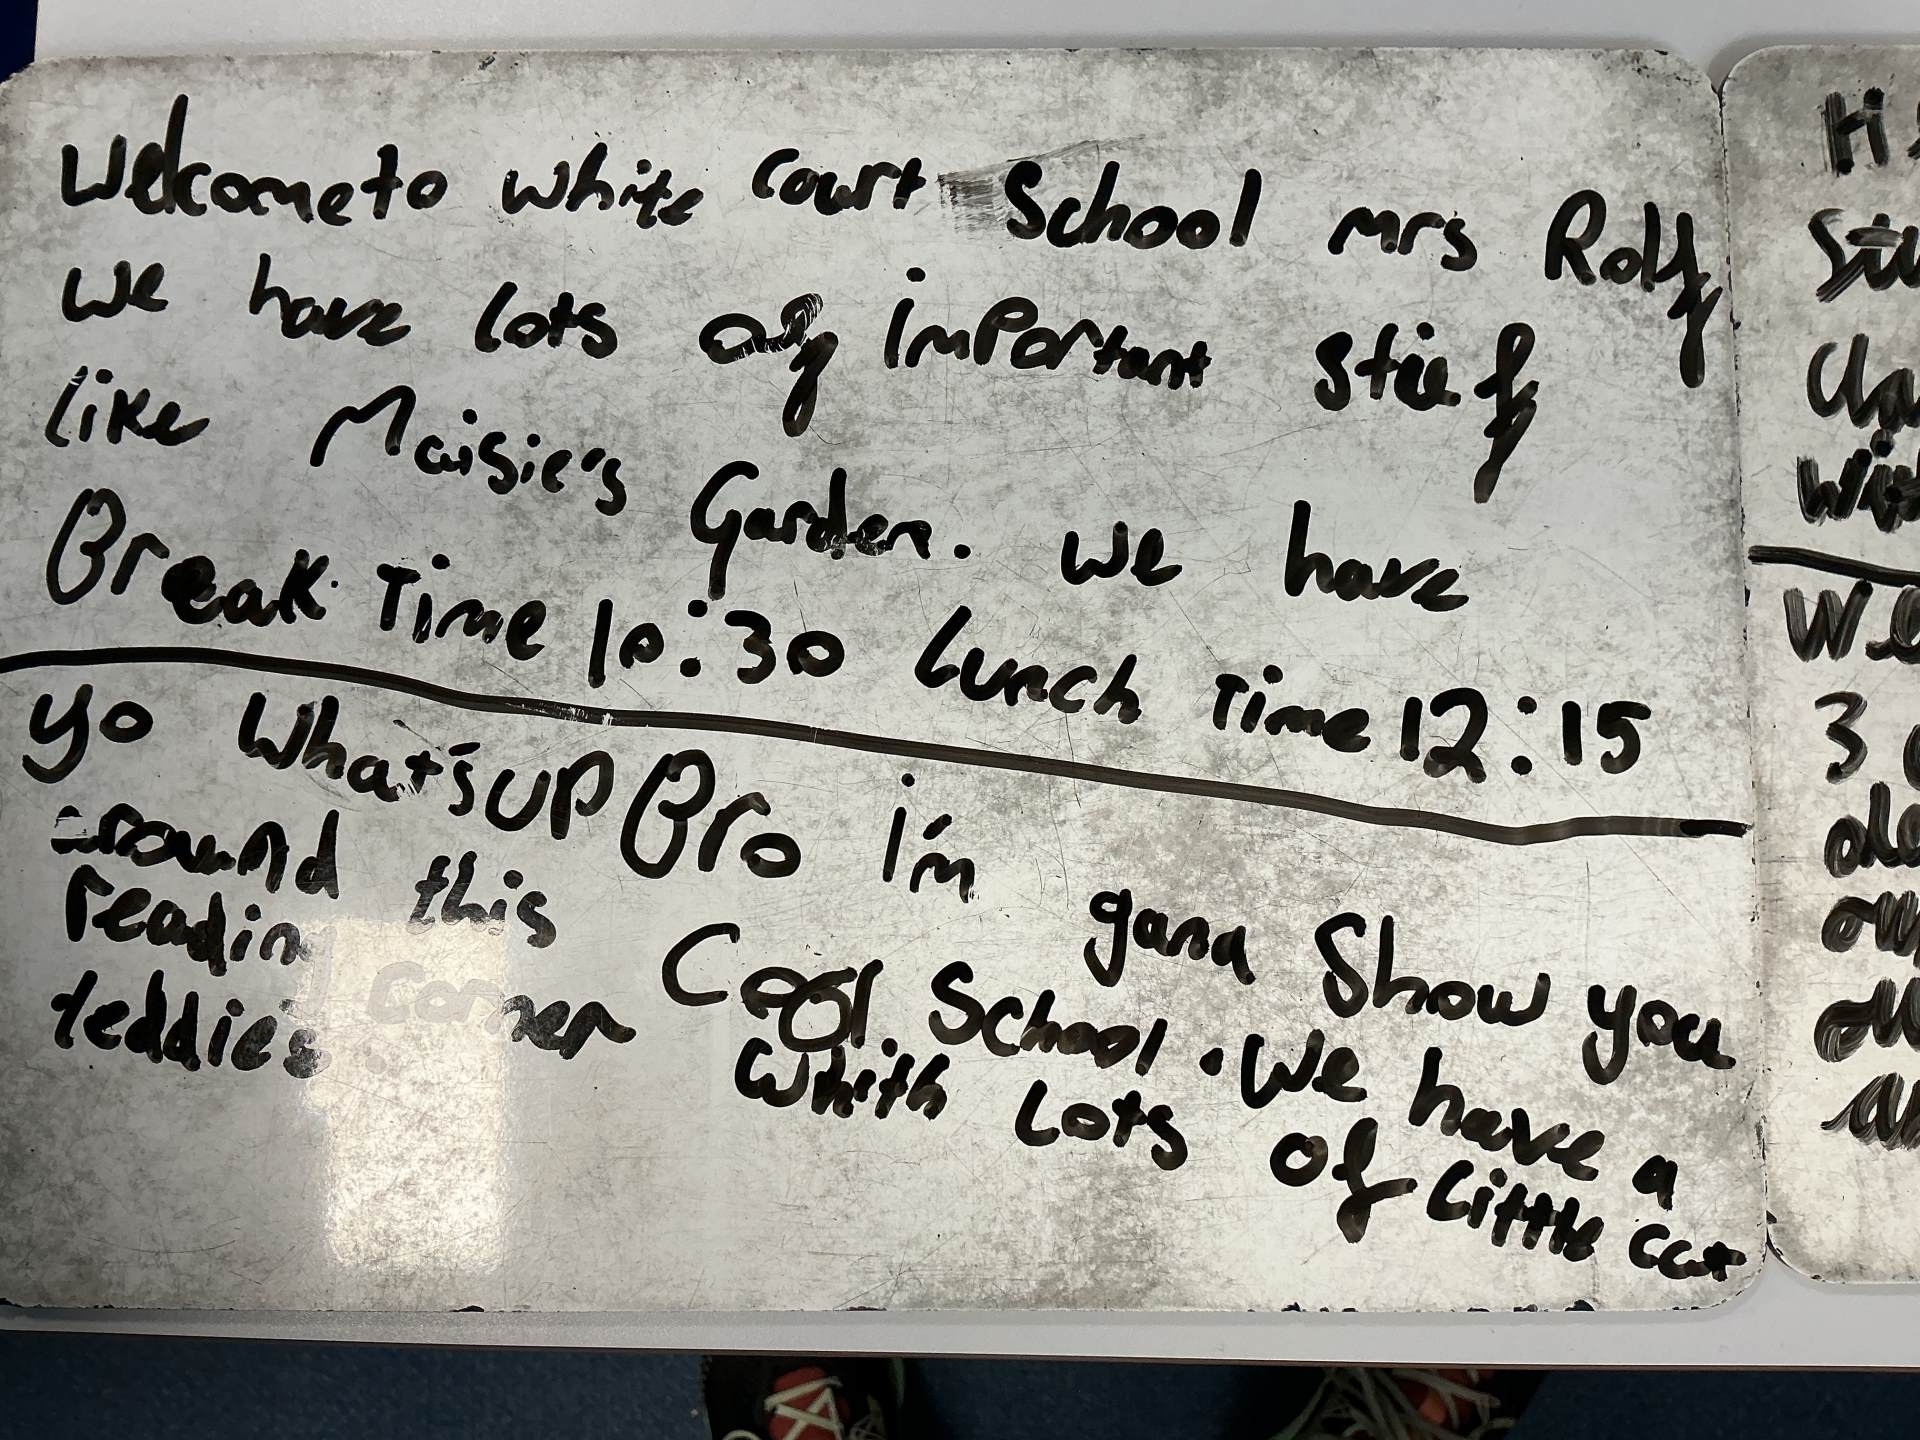 Welcome to white court School mrs Rolf
we have lots of imPortant steef
like Maisie's Garden. we have
Break Time 10:30 Lunch Time 12:15
yo What's uP Bro i'm gana Show you
around this Cool School. We have a
reading Corner whith Lots of Little cat
teddies.
H
3